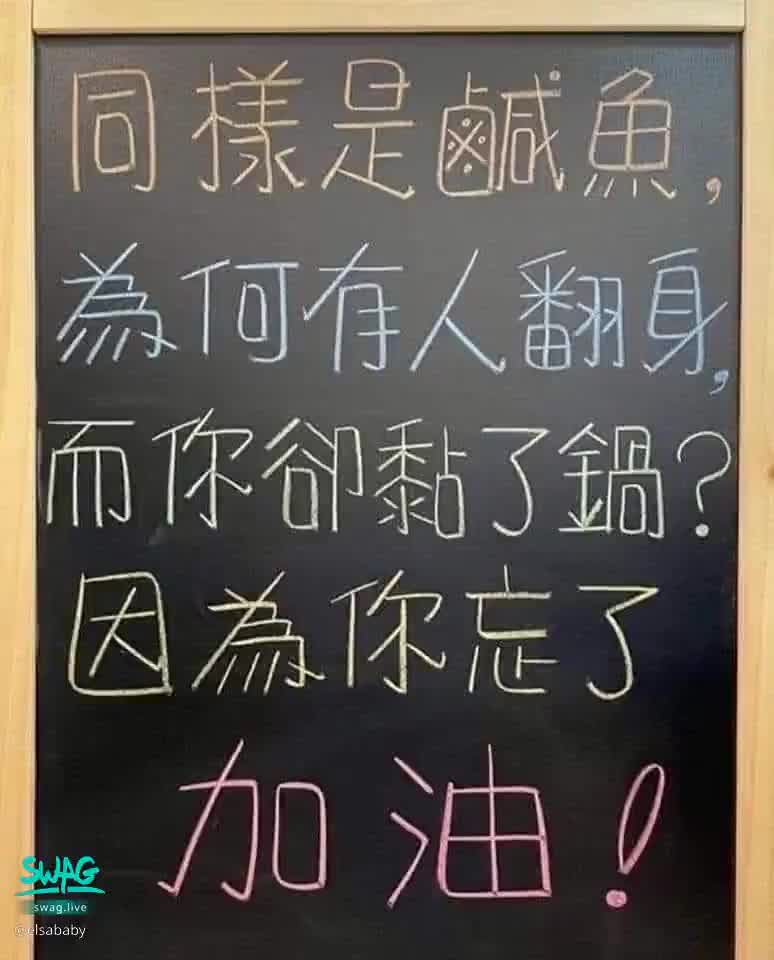 同樣是鹹魚,
為何有人翻身,
而你卻黏了鍋?
因為你忘了
加油!
SWAG
swag.live
@elsababy